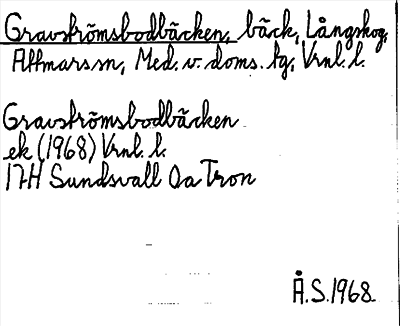 Gravströmsbodbäcken, bäck, Långskog,
Attmars sn, Med. v. doms. tg, Vrnl. l.
Gravströmsbodbäcken
ek (1968) Vrnl. l.
17H Sundsvall 0a Tron
Å.S. 1968